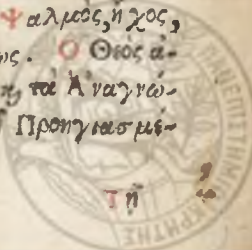 Ψαλμὸς, ἦχος,
ως. Ὁ Θεὸς ἀ-
τὰ Ἀναγνώ-
Προηγιασμέ-
Τῇ